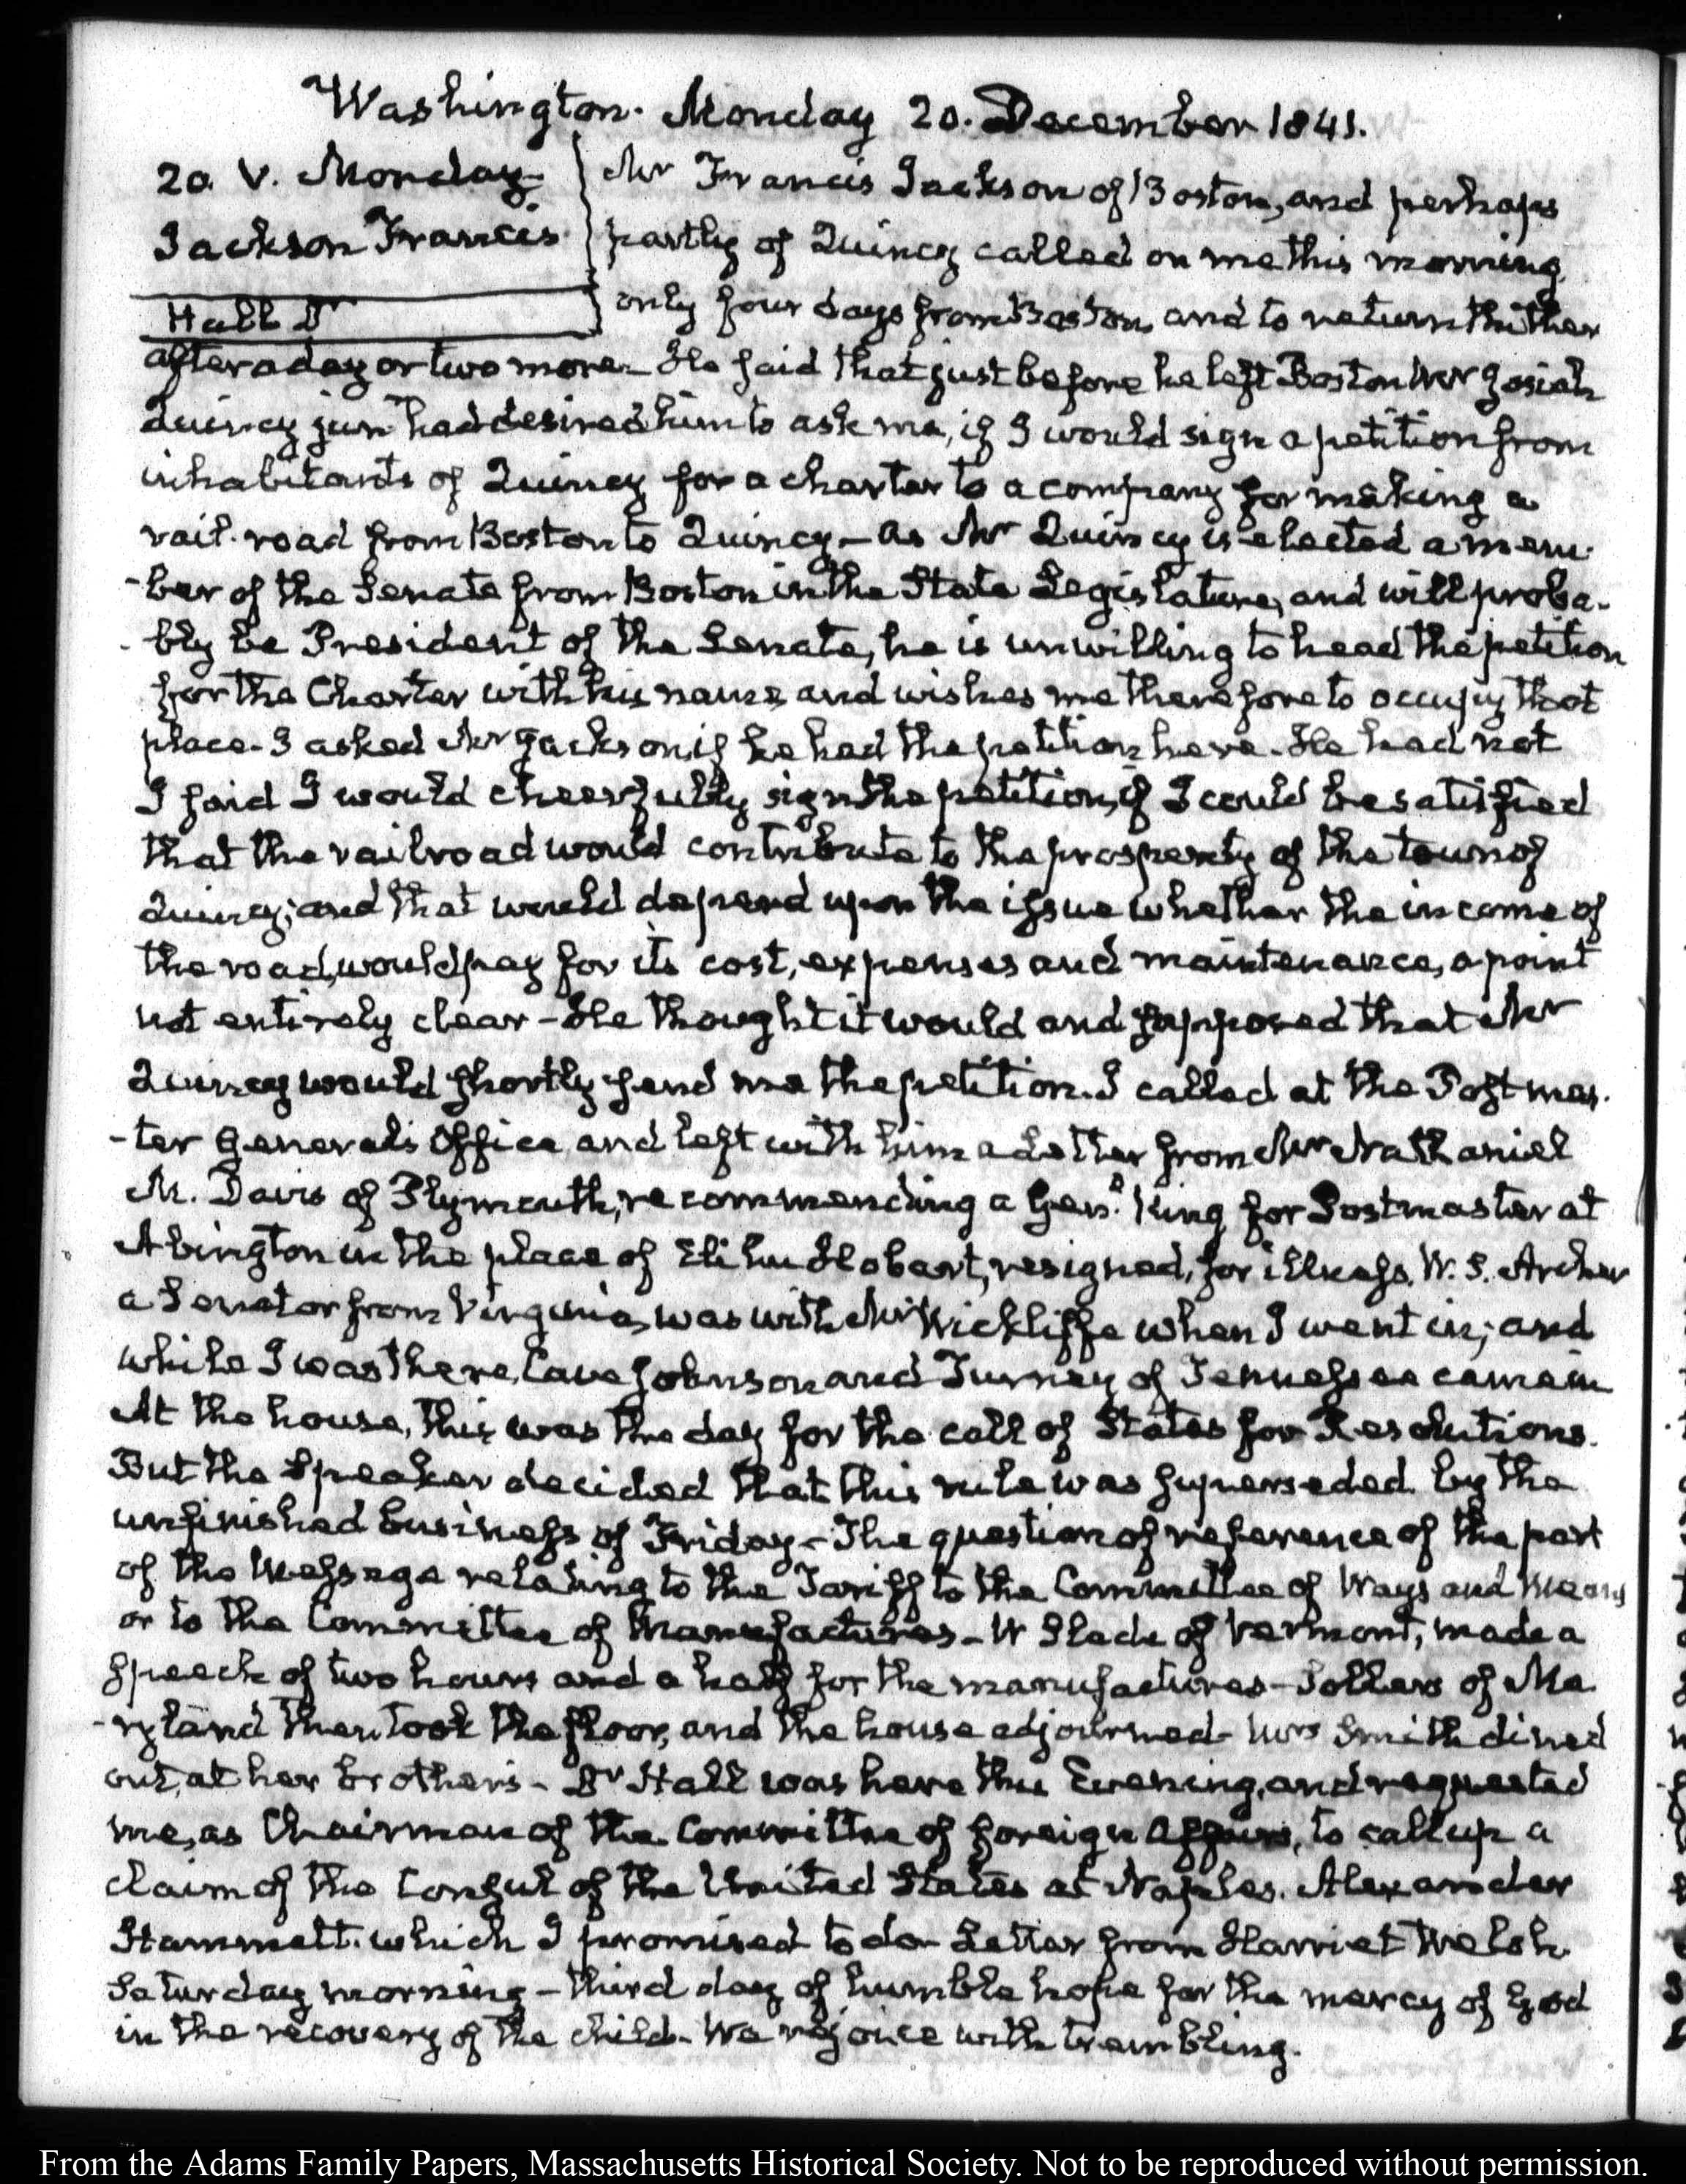 Washington. Monday 20. December 1841.
20. V. Monday
Jackson Francis.
Hall Dr
Mr Francis Jackson of Boston, and perhaps
partly of Quincy called on me this morning,
only four days from Boston, and to return thither
after a day or two more. He said that just before he left Boston Mr Josiah
Quincy junr had desired him to ask me, if I would sign a petition from
inhabitants of Quincy for a charter to a company for making a
rail-road from Boston to Quincy — as Mr Quincy is elected a mem-
-ber of the Senate from Boston in the State Legislature, and will proba-
-bly be President of the Senate, he is unwilling to head the petition
for the Charter with his name, and wishes me therefore to occupy that
place. I asked Mr Jackson if he had the petition here. He had not
I said I would cheerfully sign the petition, if I could be satisfied
that the railroad would contribute to the prosperity of the town of
Quincy; and that would depend upon the issue whether the income of
the road, would pay for its cost, expenses and maintenance, a point
not entirely clear — He thought it would and supposed that Mr
Quincy would shortly send me the petition. I called at the Post mas-
-ter General's Office and left with him a Letter from Mr Nathaniel
M. Davis of Plymouth, recommending a Genl. King for Postmaster at
Abington in the place of Elihu Hobart, resigned, for illness. W. S. Archer
a Senator from Virginia, was with Mr Wickliffe when I went in; and
while I was there, Cave Johnson and Turney of Tennessee came in
At the house, this was the day for the call of States for Resolutions.
But the Speaker decided that this rule was superseded by the
unfinished business of Friday — The question of reference of the part
of the Message relating to the Tariff to the Committee of Ways and Means
or to the Committee of Manufactures — W Slade of Vermont, made a
speech of two hours and a half for the manufactures — Sollers of Ma-
-ryland then took the floor, and the house adjourned — Mrs Smith dined
out, at her brother's — Dr Hall was here this Evening, and requested
me, as Chairman of the Committee of foreign Affairs, to call up a
claim of the Consul of the United States at Naples. Alexander
Hammett. which I promised to do — Letter from Harriet Welsh
Saturday morning — third day of humble hope for the mercy of God
in the recovery of the child. We rejoice with trembling.
From the Adams Family Papers, Massachusetts Historical Society. Not to be reproduced without permission.